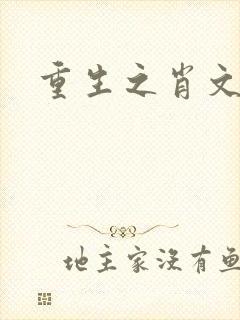 重生之肖文
地主家没有鱼